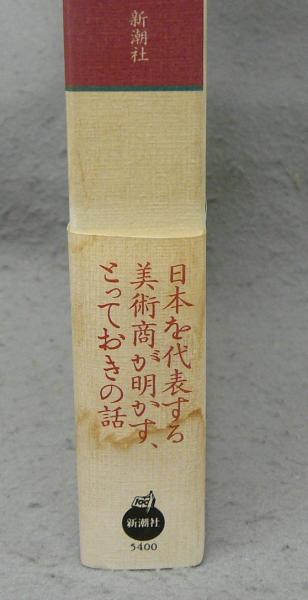 新潮社
日本を代表する
美術商が明かす、
とっておきの話
100
新潮社
5400